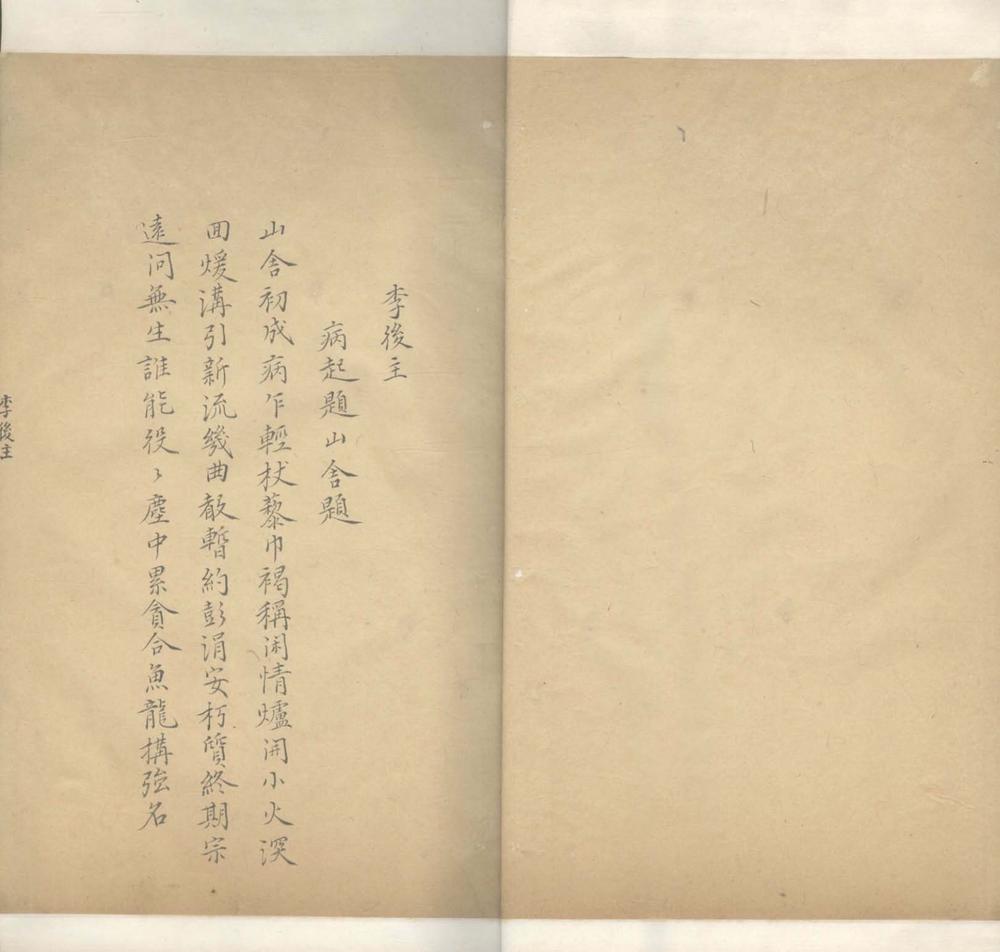 李後主
病起題山舍題
山舍初成病乍輕杖藜巾褐稱闲情爐開小火深
回煖溝引新流幾曲敲暫約彭涓安朽質終期宗
遠问無生誰能役〻塵中累貪合魚龍搆强名
李後主